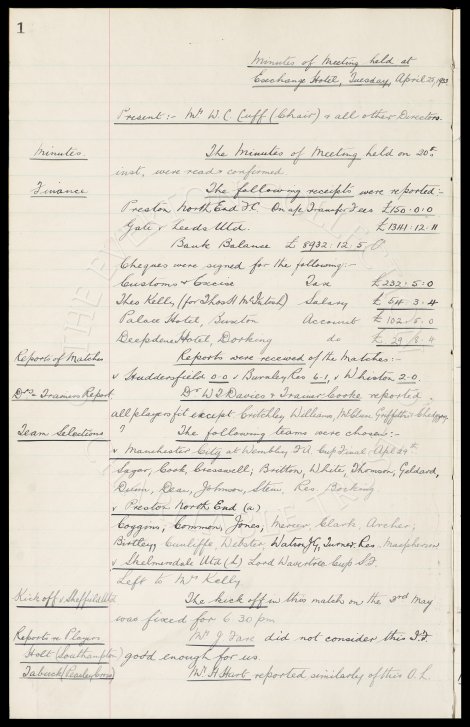 1
Minutes of Meeting held at
Exchange Hotel, Tuesday, April 25, 1933
Present:- Mr W. C. Cuff (Chair) & all other Directors.
Minutes The Minutes of Meeting held on 20th
inst, were read & confirmed
Finance The following receipts were reported:-
Preston North End F.C. On a/c Transfer Fees £150.0.0
Gate v Leeds Utd. £1341.12.11
Bank Balance £8932.12.5
Cheques were signed for the following:-
Customs & Excise Tax £232.5.0
Theo Kelly, (for Thos H McIntosh) Salary £514.3.4
Palace Hotel, Buxton Account £102.5.0
Deepdene Hotel, Dorking do £29.8.4
Reports of Matches Reports were received of the Matches:-
v Huddersfield 0.0 v Burnley Res 6.1, v Whiston 2.0.
Drs & Trainers Report Dr W. T. Davies & Trainer Cooke reported
all players fit except Critchley, Williams, McClure, Griffiths &
Team Selections ? The following teams were chosen:-
v Manchester City at Wembley F.A. Cup Final. Apl 29th
Sagar, Cook, Cresswell, Britton, White, Thomson, Geldard,
Dunn, Dean, Johnson, Stein, Res Bocking
v Preston North End (a)
Coggins, Common, Jones, Mercer, Clark, Archer,
Birtley, Cunliffe, Webster, Watson J.G., Turner. Res. Macpherson
v Skelmersdale Utd (h) Lord Wavertree Cup S.F.
Left to Mr Kelly
Kick off v Sheffield Utd The kick off in this match on the 3rd May
was fixed for 6.30 pm
Reports re Players Mr J. Fare did not consider this I.F.
Holt (Southampton) good enough for us.
Tabuck Mr H Hart reported similarly of this O.L.